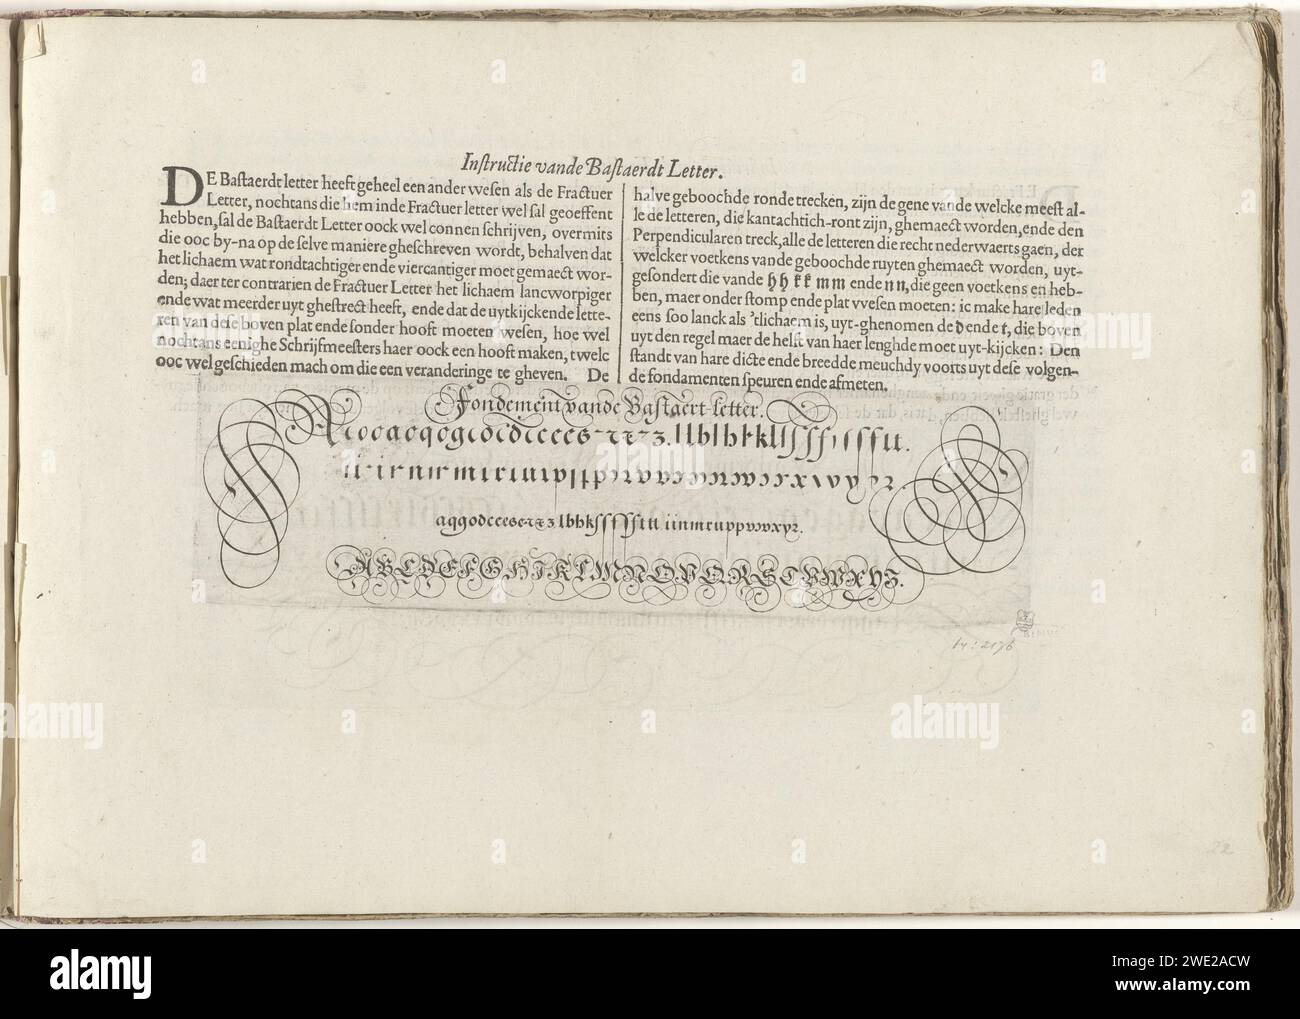 Instructie vande Bastaerdt Letter.
DE Bastaerdt letter heeft geheel een ander wesen als de Fractuer
Letter, nochtans die hem inde Fractuer letter wel sal geoeffent
hebben, sal de Bastaerdt Letter oock wel connen schrijven, overmits
die ooc by-na op de selve maniere gheschreven wordt, behalven dat
het lichaem wat rondtachtiger ende viercantiger moet gemaect wor-
den; daer ter contrarien de Fractuer Letter het lichaem lancworpiger
ende wat meerder uyt ghestrect heeft, ende dat de uytkijckende lette-
ren van dese boven plat ende sonder hooft moeten wesen, hoe wel
nochtans eenighe Schrijfmeesters haer oock een hooft maken, twelc
ooc wel geschieden mach om die een veranderinge te gheven. De
halve geboochde ronde trecken, zijn de gene vande welcke meest al-
le de letteren, die kantachtich-ront zijn, ghemaect worden, ende den
Perpendicularen treck, alle de letteren die recht nederwaerts gaen, der
welcker voetkens van de geboochde ruyten ghemaect worden, uyt-
gesondert die vande h h k k m m ende n n, die geen voetkens en heb-
ben, maer onder stomp ende plat vvesen moeten: ic make hare leden
eens soo lanck als 'tlichaem is, uyt-ghenomen de d ende t, die boven
uyt den regel maer de helft van haer lenghde moet uyt-kijcken: Den
standt van hare dicte ende breedde meuchdy voorts uyt dese volgen-
de fondamenten speuren ende afmeten.
Fondement vande Bastaert-letter.
ABCDEFGHIKLMNOPQRSTVWXYZ.
22
alamy
Image ID: 2WE2ACW
www.alamy.com